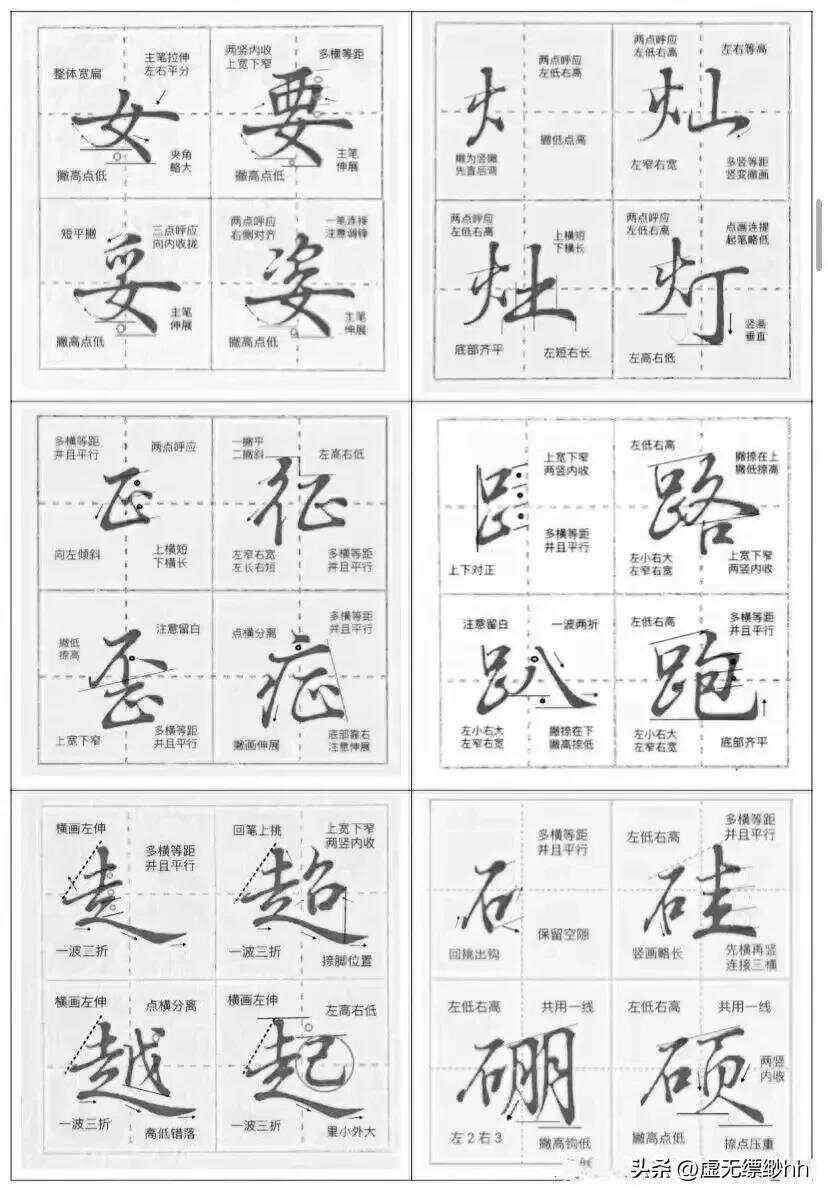 整体宽扁
主笔拉伸
左右平分
女
夹角
略大
撇高点低
两竖内收
上宽下窄
多横等距
要
主笔
伸展
撇高点低
短平撇
三点呼应
向内收拢
妥
主笔
伸展
撇高点低
两点呼应
右侧对齐
一笔连接
注意调锋
姿
主笔
伸展
撇高点低
两点呼应
左低右高
火
撇低点高
撇为竖撇
先直后弯
两点呼应
左低右高
左右等高
灿
左窄右宽
多竖等距
竖变撇画
两点呼应
左低右高
上横短
下横长
灶
底部齐平
左短右长
两点呼应
左低右高
点画连提
起笔略低
灯
竖画
垂直
左高右低
多横等距
并且平行
两点呼应
正
向左倾斜
上横短
下横长
一撇平
二撇斜
左高右低
征
左窄右宽
左长右短
多横等距
并且平行
撇低
捺高
注意留白
歪
上宽下窄
多横等距
并且平行
点横分离
多横等距
并且平行
症
撇画伸展
底部靠右
注意伸展
上宽下窄
两竖内收
多横等距
并且平行
上下对正
左低右高
撇捺在上
撇低捺高
路
左小右大
左窄右宽
上宽下窄
两竖内收
注意留白
一波两折
趴
左小右大
左窄右宽
撇捺在下
撇高捺低
左低右高
多横等距
并且平行
跑
左小右大
左窄右宽
底部齐平
横画左伸
多横等距
并且平行
走
一波三折
回笔上挑
上宽下窄
两竖内收
超
一波三折
捺脚位置
横画左伸
点横分离
越
一波三折
高低错落
横画左伸
左高右低
起
一波三折
里小外大
多横等距
并且平行
石
保留空隙
回挑出钩
左低右高
多横等距
并且平行
硅
竖画略长
先横再竖
连接三横
左低右高
共用一线
硼
左2右3
撇高钩低
左低右高
共用一线
硕
两竖
内收
撇高点低
捺点压重
头条 @虚无缥缈hh